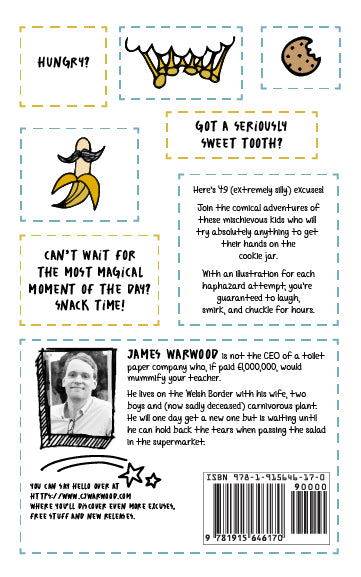 HUNGRY?
GOT A SERIOUSLY
SWEET TOOTH?
Here's 49 (extremely silly) excuses!
Join the comical adventures of
these mischievous kids who will
try absolutely anything to get
their hands on the
cookie jar.
With an illustration for each
haphazard attempt, you're
guaranteed to laugh,
smirk, and chuckle for hours.
CAN'T WAIT FOR
THE MOST MAGICAL
MOMENT OF THE DAY?
SNACK TIME!
JAMES WARWOOD is not the CEO of a toilet
paper company who, if paid £1,000,000, would
mummify your teacher.
He lives on the Welsh Border with his wife, two
boys and (now sadly deceased) carnivorous plant.
He will one day get a new one but is waiting until
he can hold back the tears when passing the salad
in the supermarket.
YOU CAN SAY HELLO OVER AT
HTTPS://WWW.CJWARWOOD.COM
WHERE YOU'LL DISCOVER EVEN MORE EXCUSES,
FREE STUFF AND NEW RELEASES.
ISBN 978-1-915646-17-0
90000
9 781915 646170